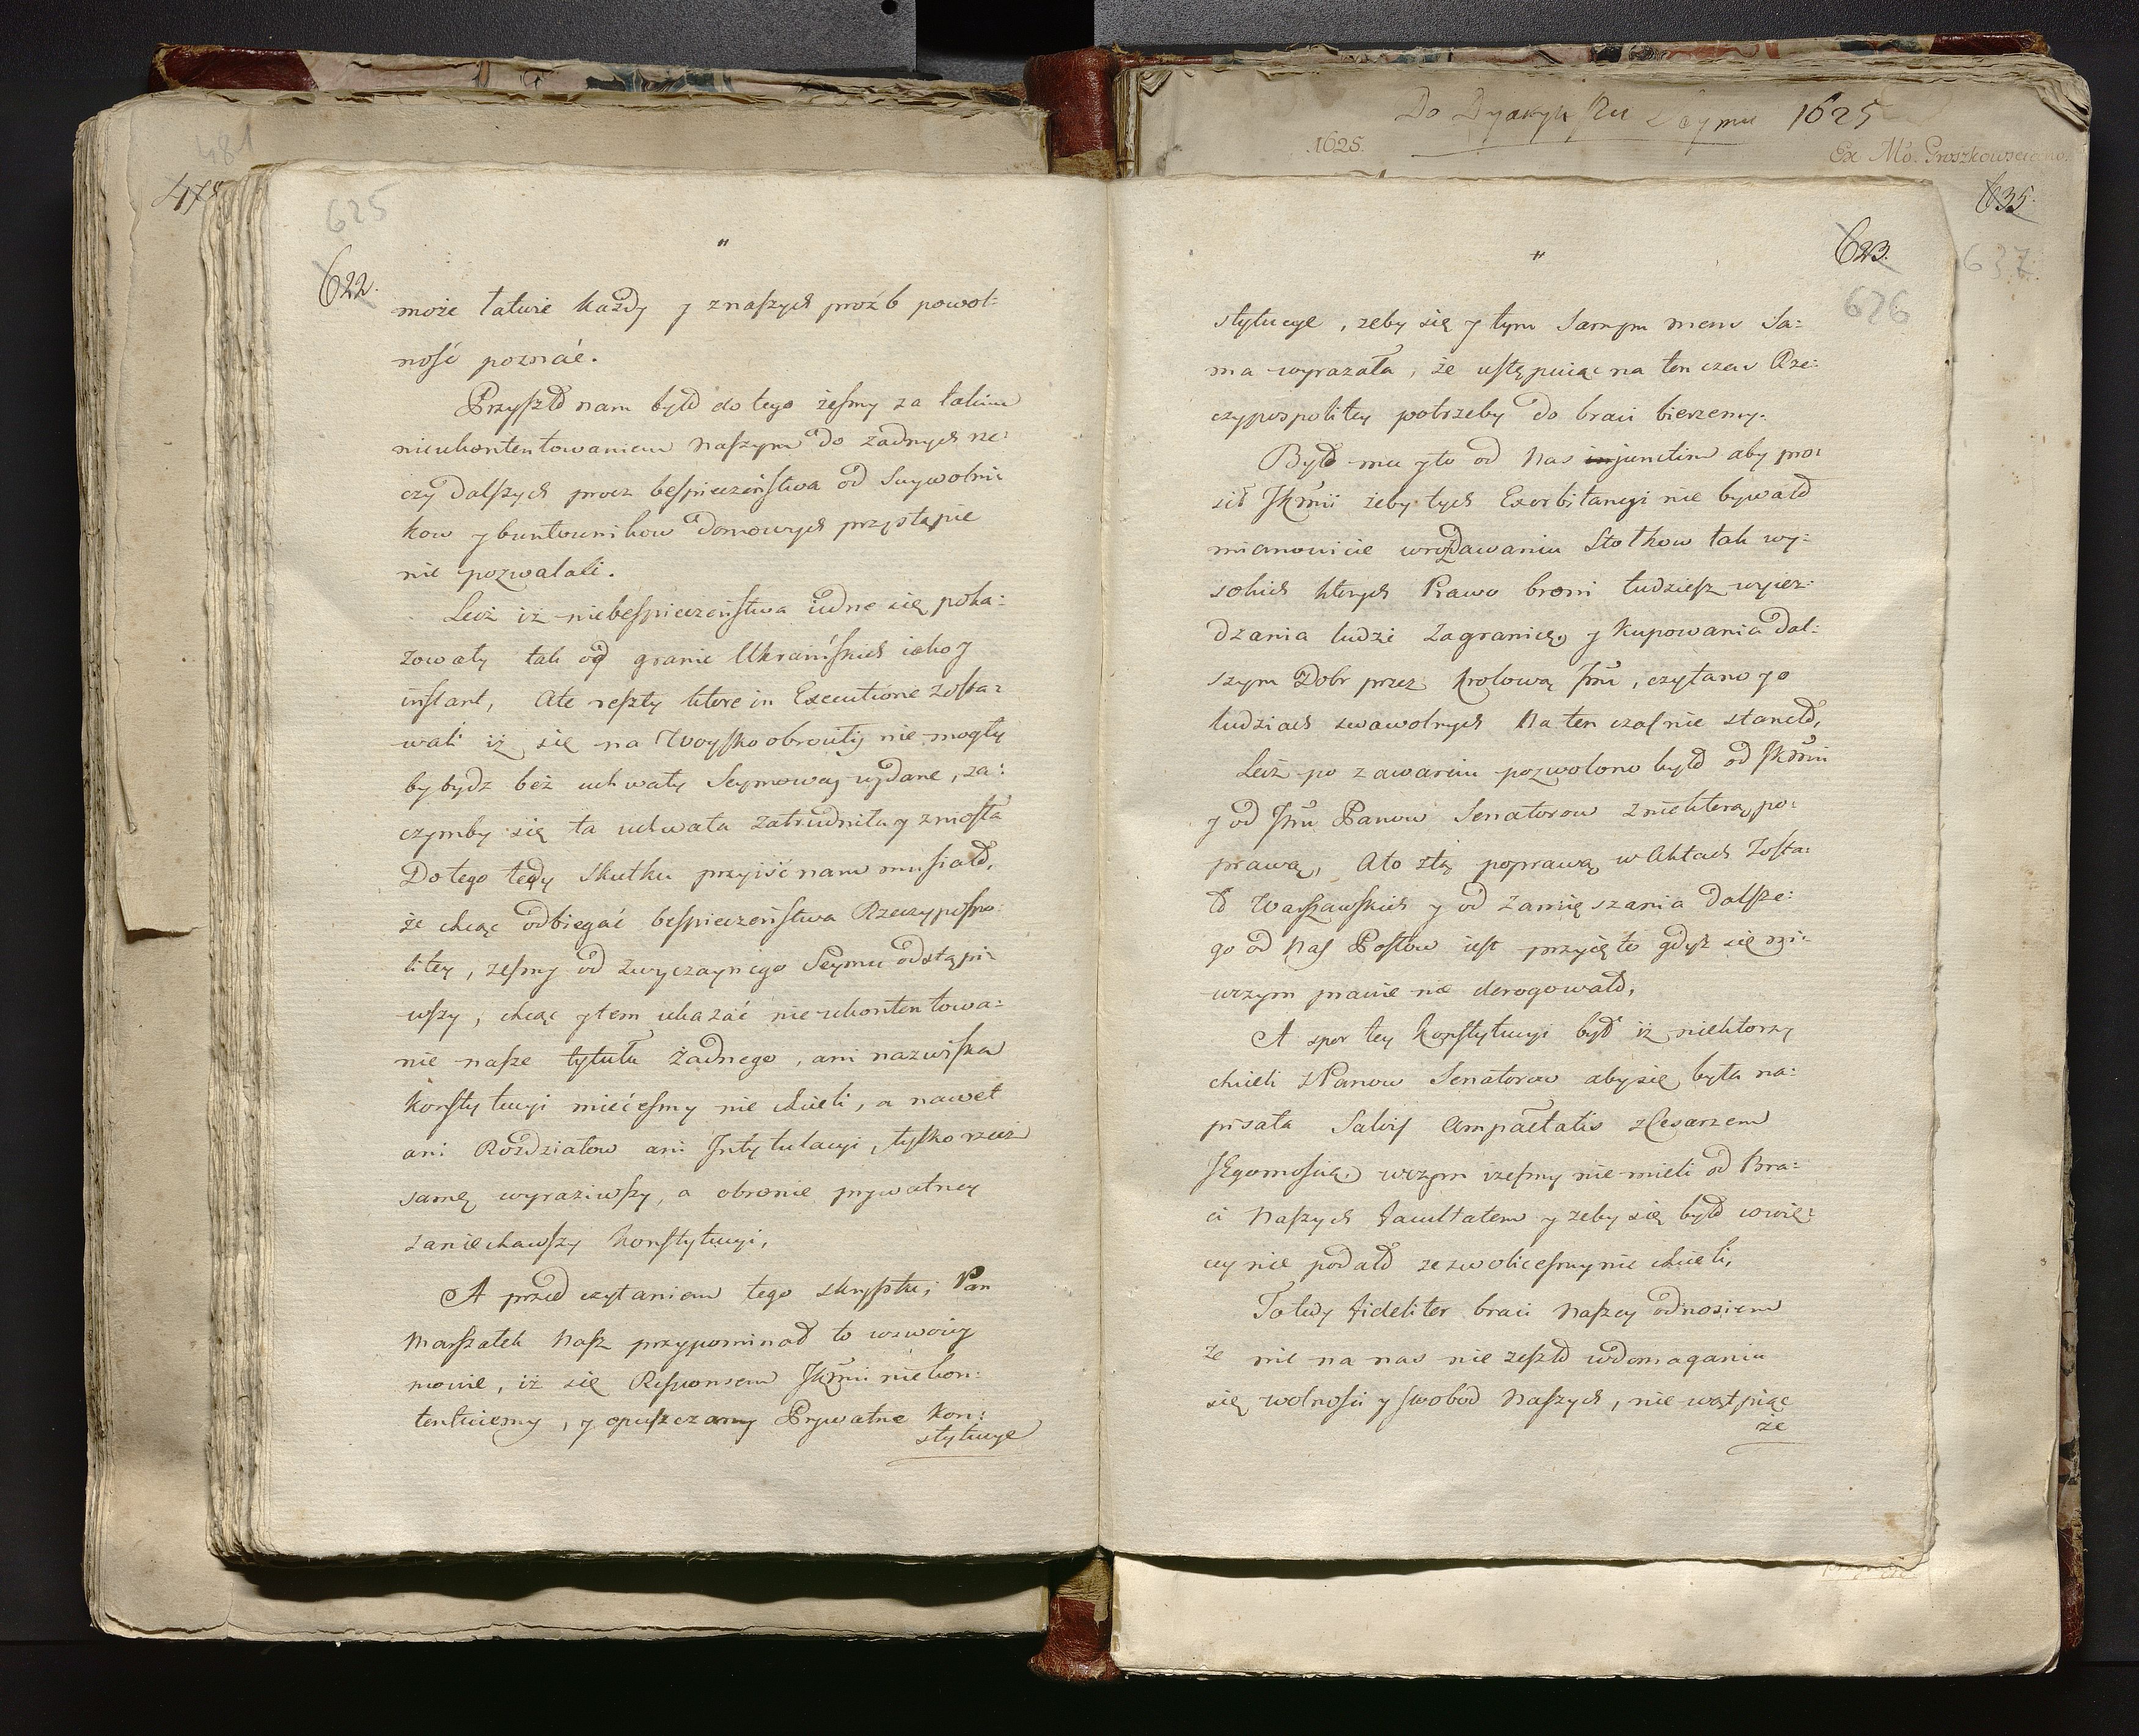 481
478
625
622.
"
może łatwie każdy y znaſzych proźb powol:
ność poznać.
Przyſzło nam było do tego żeſmy za takim
nieukontentowaniem naſzym do żadnych rze:
czy dalſzych procz beſpieczeńſtwa od Swywolni:
kow y buntownikow domowych przystąpić
nie pozwalali.
Lecz iż niebeſpieczeńſtwa iedne się poka:
zowały tak od granic Ukraińſkich iako y
inſtant, Ate reſzty ktore in Executione zoſta:
wali iż się na Woyſko obrociły nie mogły
by bydz beż uchwały Seymowey wydane, za:
czymby się ta uchwała zatrudniła y znioſła
Do tego tedy skutku przyiść nam muſiało,
że chcąc odbiegać beſpieczeńſtwa Rzeczypoſpo:
litey, żeſmy od zwyczaynego Seymu odstąpi:
wſzy, chcąc y tem ukazać nieukontentowa:
nie naſze tytułu żadnego, ani nazwiſka
konſtytucyi mieć eſmy nie chcieli, a nawet
ani Rozdziałow ani Intytulacyi, tylko rzecz
samę wyraziwſzy, a obronie prywatney
zaniechawſzy konſtytucyi,
A przed czytaniem tego skryptu; Pan
Marſzałek Naſz przypominał to wswoiey
mowie, iż się Reſponsem JKrMci nie kon:
tentuiemy, y opuſzczamy Prywatne kon:
stytucye
Do Dyaryuſzu Seymu 1625
1625.
Ex Mo. Groszkowsciano.
635.
637.
"
623.
626
stytucye, zeby się y tym samym mem sa:
ma wyrazała, że uſtępuiąc na ten czas Rze:
czypospolitey potrzeby do braci bierzemy.
Było mu y to od Nas injunctim aby pro:
sił JKrMci żeby tych Exorbitancyi nie bywało
mianowicie wrozdawaniu Stołkow tak wy:
sokich ktorych Prawo broni tudzieſz wyież:
dzania ludzi zagranicę, y kupowania dal:
szym Dobr przez Krolową Jmć, czytano y o
ludziach swawolnych Na ten czaſ nie stanęło,
Lecz po zawarciu pozwolono było od JKrMci
y od Jchmć Panow Senatorow z niektorą po:
prawą, Ato ztą poprawą w Aktach Zoſta:
ło Warſzawſkich y od zamięszania dalſze:
go od Naſ Poſłow ieſt przyięto gdyż się ni:
wczym prawie nie derogowało,
A spor tey Konſtytucyi był iż niektorzy
chcieli z Panow Senatorow aby się była na:
pisała Salvis Ampactatis z Cesarzem
JEgomoſcią, wczym iżeſmy nie mieli od Bra:
ci Naſzych facultatem y zeby się było wwię:
cey nie podało zezwolić eſmy nie chcieli,
To tedy fideliter braci Naſzey odnosiem
że nic na nas nie zeſzło wdomaganiu
się wolnoſci y ſwobod Naſzych, nie wątpiąc
że